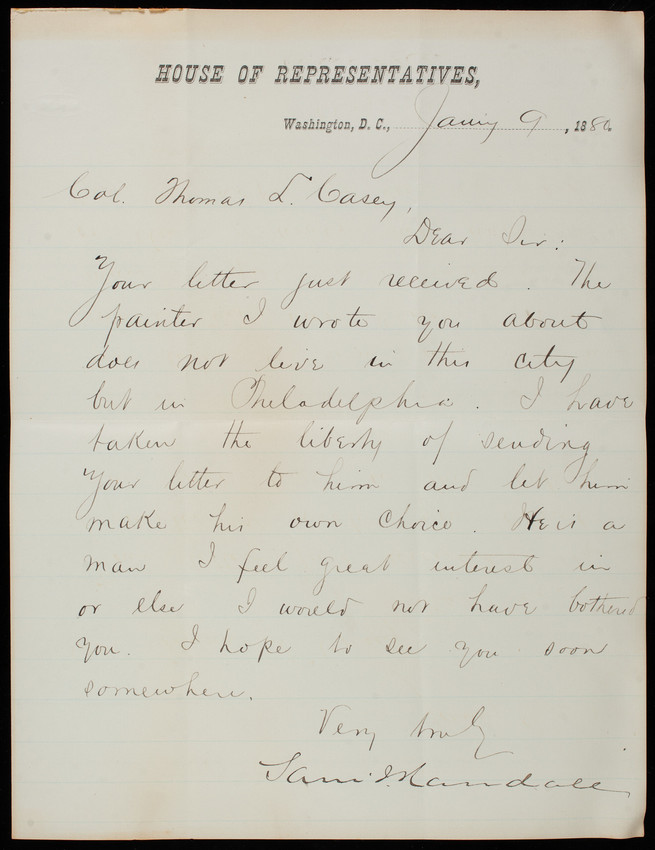 HOUSE OF REPRESENTATIVES,
Washington, D. C., Jany 9, 188
Col. Thomas L. Casey,
Dear Sir:
Your letter just received. The
painter I wrote you about
does not live in this city
but in Philadelphia. I have
taken the liberty of sending
Your letter to him and let him
make his own choice. He is a
man I feel great interest in
or else I would not have bothered
you. I hope to see you soon
somewhere.
Very truly
Saml J. Randall